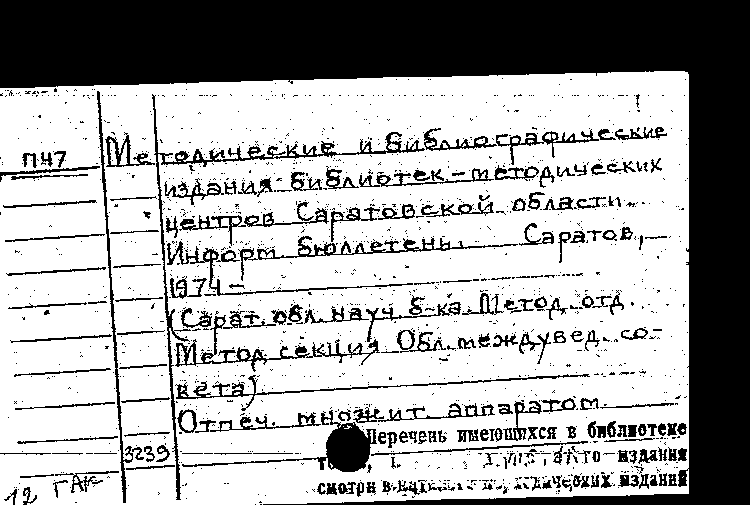 П47
Методические и библиографические
издания библиотек-методических
центров Саратовской области.
Информ. бюллетень. Саратов,
1974-
(Сарат. обл. науч. б-ка. Метод. отд.
Метод. секция Обл. междувед. со-
вета)
Отпеч. множит. аппаратом.
Перечень имеющихся в библиотеке
издания
3239
смотри в издания
12 ГАК